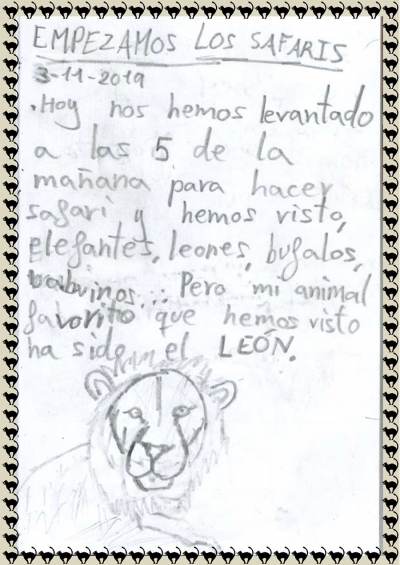 EMPEZAMOS LOS SAFARIS
3-11-2019
. Hoy nos hemos levantado
a las 5 de la
mañana para hacer
safari y hemos visto,
elefantes, leones, bufalos,
babuinos... Pero mi animal
favorito que hemos visto
ha sido el LEÓN.